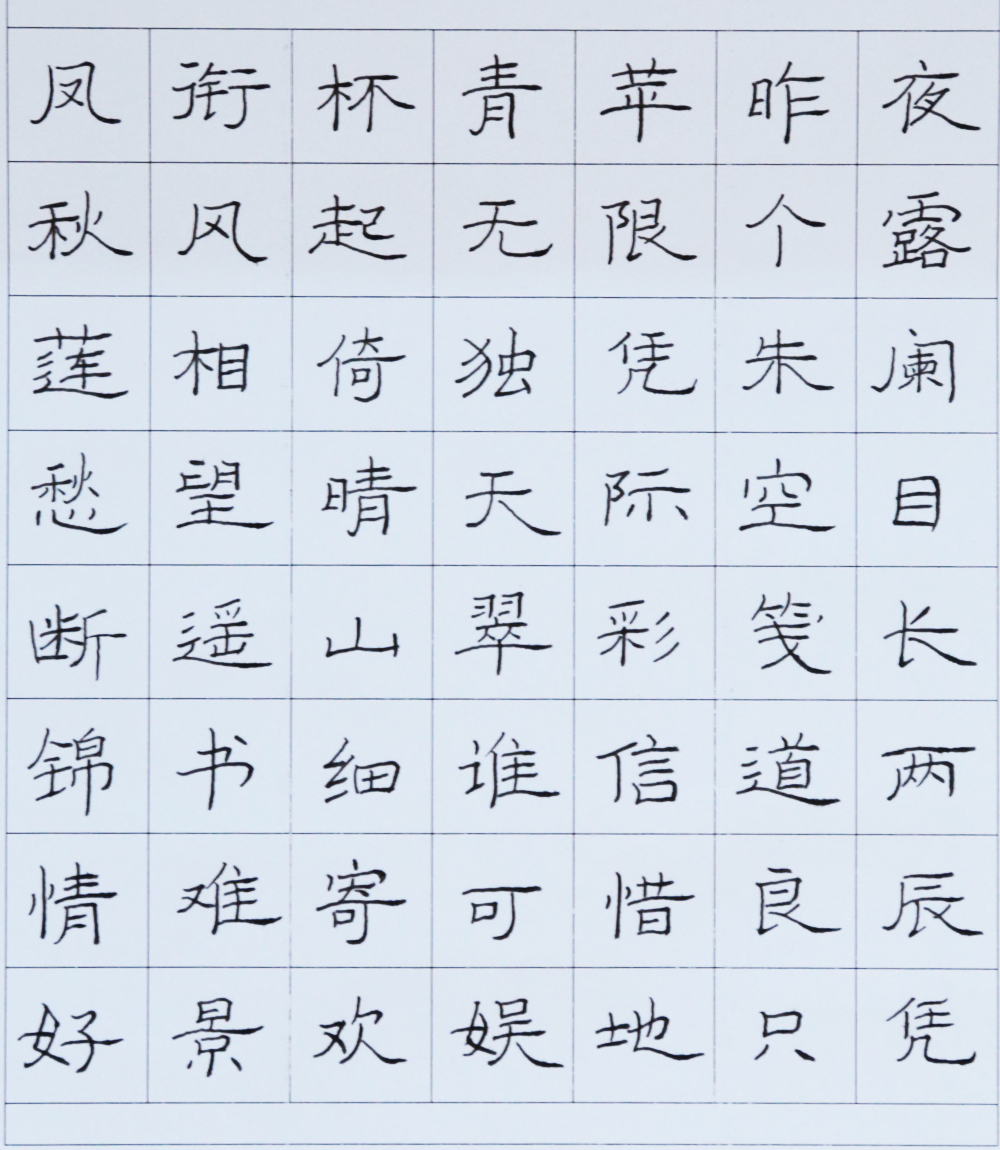 凤衔杯青苹昨夜
秋风起无限个露
莲相倚独凭朱阑
愁望晴天际空目
断遥山翠彩笺长
锦书细谁信道两
情难寄可惜良辰
好景欢娱地只凭